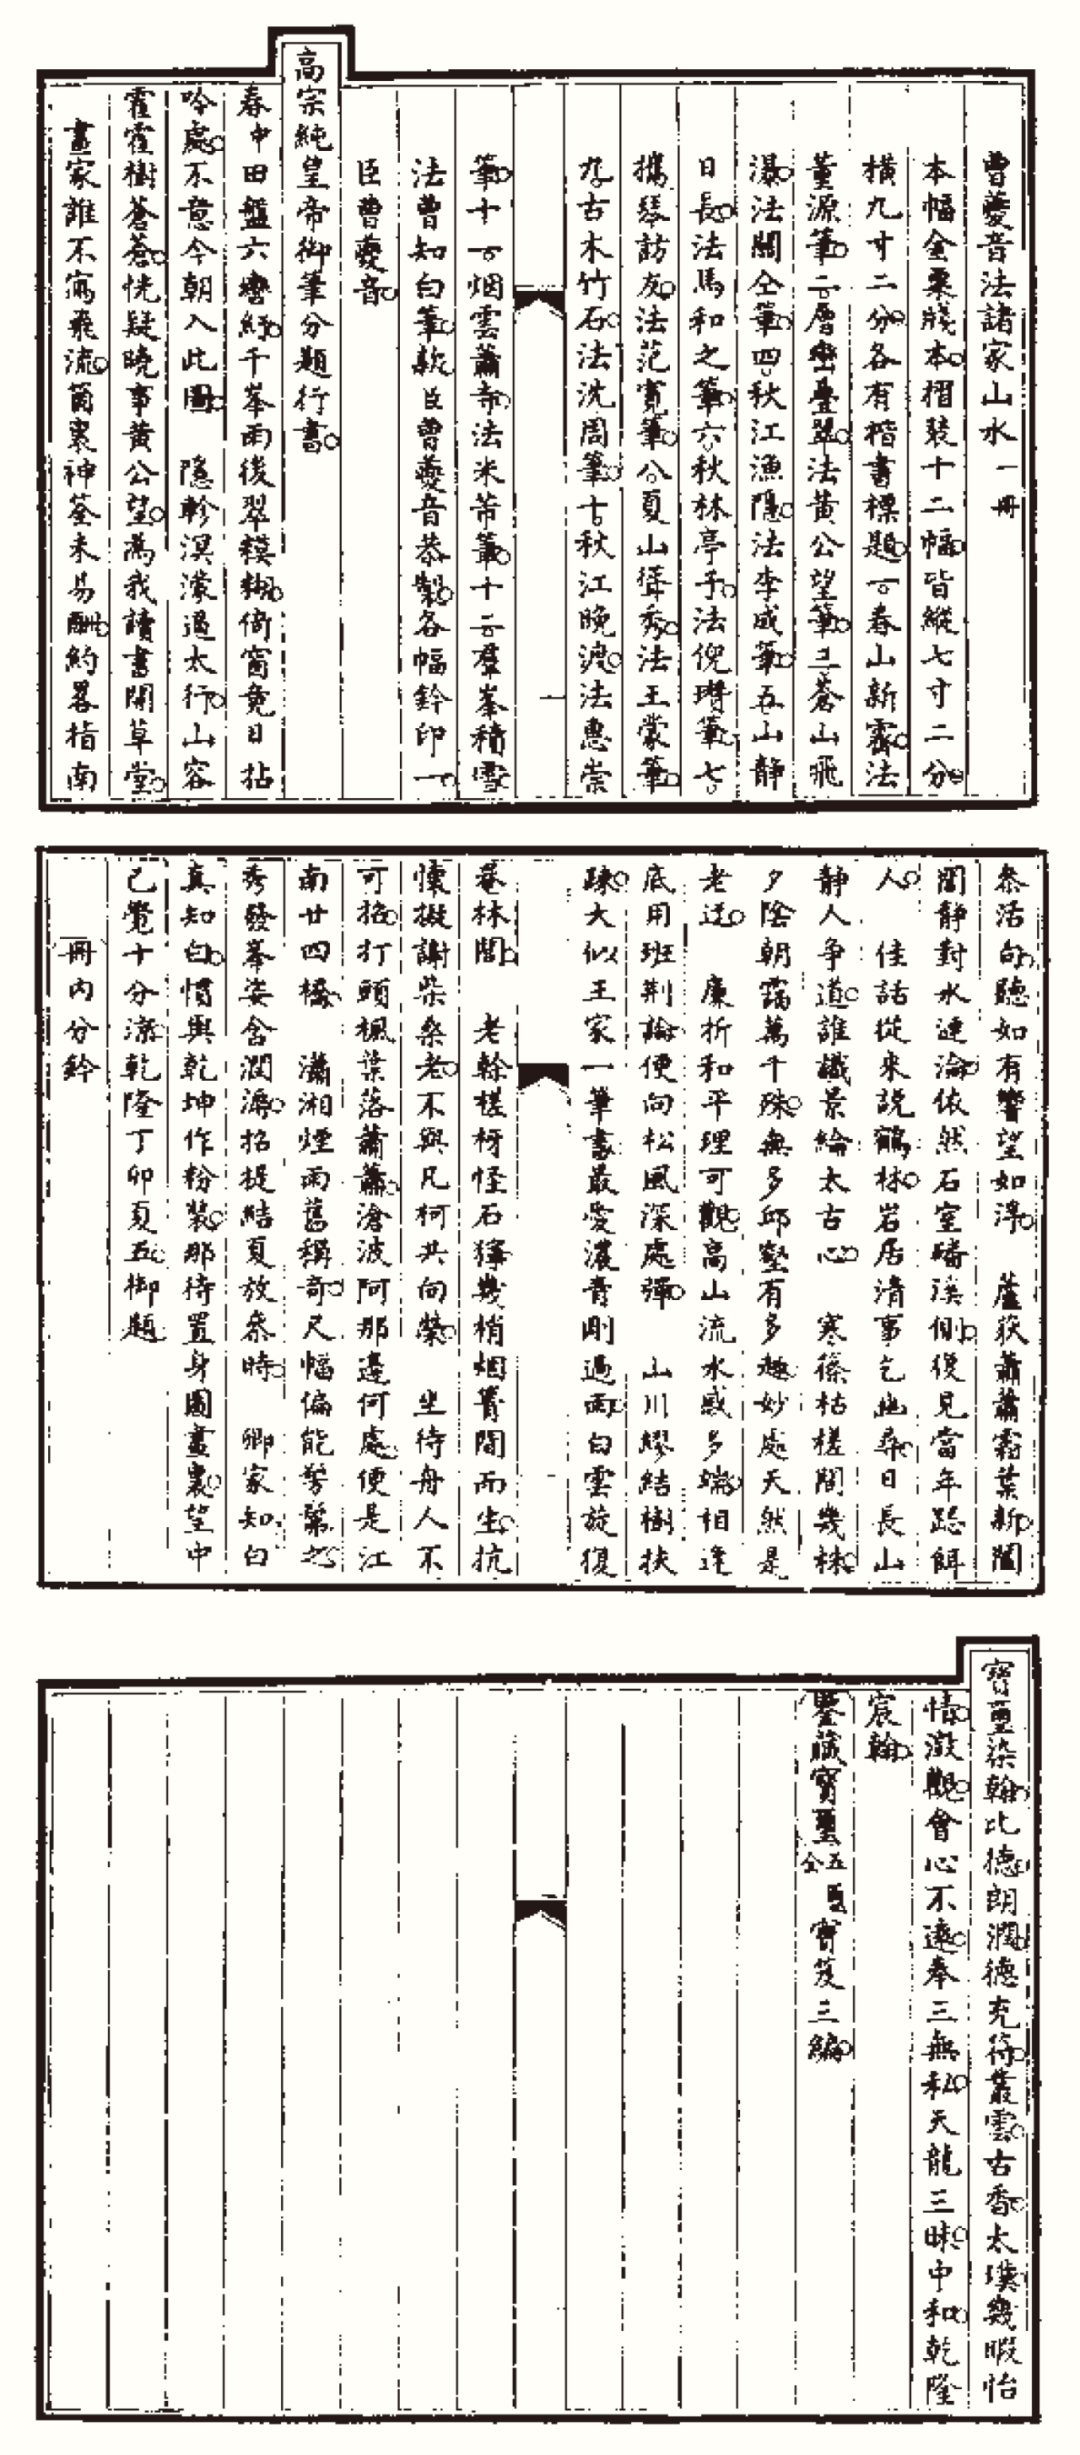 曹夔音法諸家山水一冊
本幅金粟牋本。摺裝十二幅。皆縱七寸二分。
橫九寸二分。各有楷書標題。一。春山新霽。法
董源筆。二。層巒疊翠。法黃公望筆。三。蒼山飛
瀑。法關仝筆。四。秋江漁隱。法李成筆。五。山靜
日長。法馬和之筆。六。秋林亭子。法倪瓚筆。七。
攜琴訪友。法范寬筆。八。夏山聳秀。法王蒙筆。
九。古木竹石。法沈周筆。十。秋江晚渡。法惠崇
筆。十一。烟雲蕭寺。法米芾筆。十二。羣峯積雪。
法曹知白筆。款。臣曹夔音恭製。各幅鈐印一。
臣曹夔音。
高宗純皇帝御筆分題行書。
春中田盤六轡紆。千峯雨後翠糢糊。倚窗竟日拈
吟處。不意今朝入此圖。 隱軫溟濛過太行。山容
霍霍樹蒼蒼。恍疑曉事黃公望。為我讀書開草堂。
畫家誰不寫飛流。箇裏神荃未易酬。約畧指南
叅活句。聽如有響望如浮。 蘆荻蕭蕭霜葉新。闇
闇靜對水連淪。依然石室磻溪側。復見當年跽餌
人。 佳話從來說鶴林。岩居清事乞幽尋。日長山
靜人爭道。誰識景綸太古心。 寒篠枯槎閒幾株。
夕陰朝靄萬千殊。無多邱壑有多趣。妙處天然是
老迂。 廉折和平理可觀。高山流水感多端。相逢
底用班荊論。便向松風深處彈。 山川繆結樹扶
疎。大似王家一筆書。最愛濃青剛過雨。白雲旋復
菴林閭。 老榦槎枒怪石獰。幾梢烟篝間而生。抗
懷擬謝柴桑老。不與凡柯共向榮。 坐待舟人不
可招。打頭楓葉落蕭蕭。滄波阿那邊何處。便是江
南廿四橋。 瀟湘煙雨舊稱奇。尺幅偏能髣髴之。
秀發峯姿含潤澤。招提結夏放參時。 卿家知白
真知白。慣與乾坤作粉裝。那待置身圖畫裏。望中
已覺十分涼。乾隆丁卯夏五。御題。
冊內分鈐
寶璽。染翰。比德。朗潤。德充符。叢雲。古香。太璞。幾暇怡
情。澂觀。會心不遠。奉三無私。天龍三昧。中和。乾隆
宸翰。
鑒藏寶璽五璽全寶笈三編。